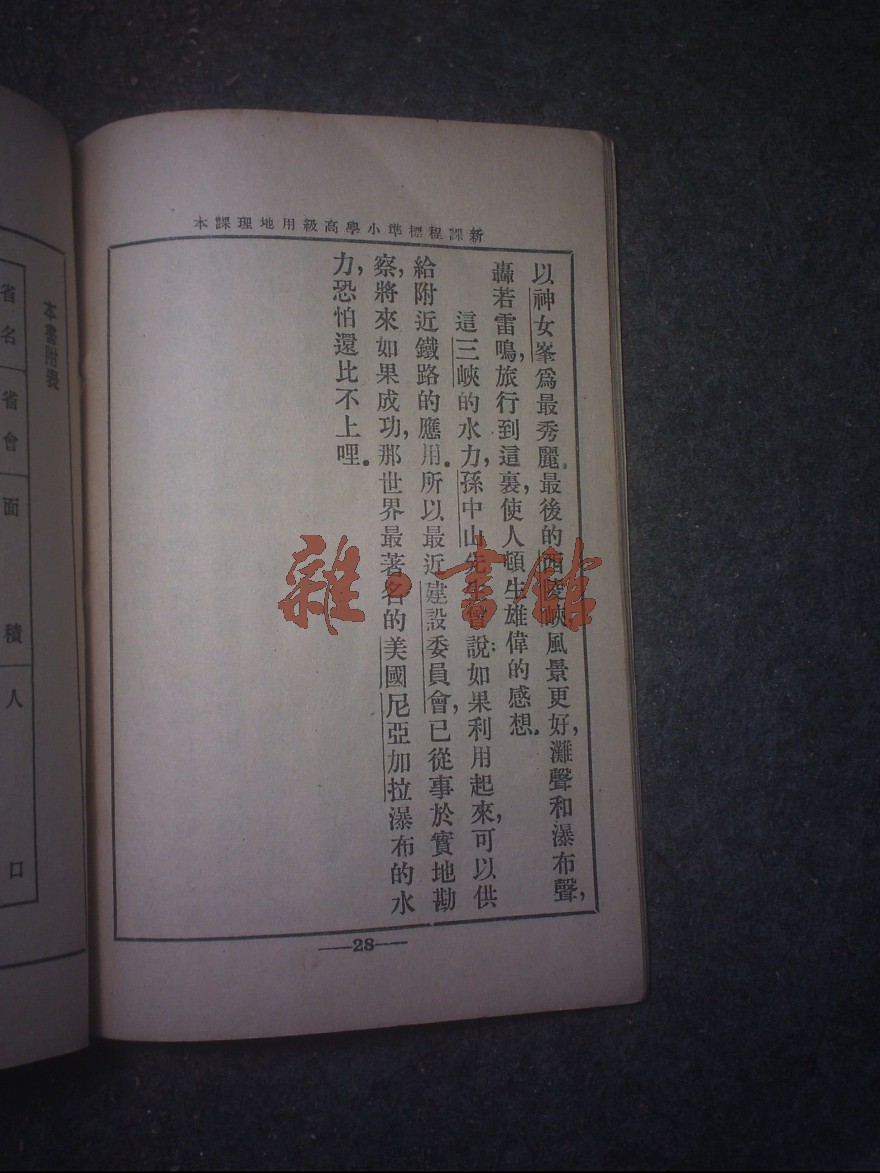 新課程標準小學高級用地理課本
以神女峯爲最秀麗。最後的西陵峽,風景更好,灘聲和瀑布聲,
轟若雷鳴,旅行到這裏,使人頓生雄偉的感想。
這三峽的水力,孫中山先生曾說:如果利用起來,可以供
給附近鐵路的應用。所以最近建設委員會,已從事於實地勘
察,將來如果成功,那世界最著名的美國尼亞加拉瀑布的水
力,恐怕還比不上哩。
—28—
本書附表
省名 省會 面積 人口
雜·書館